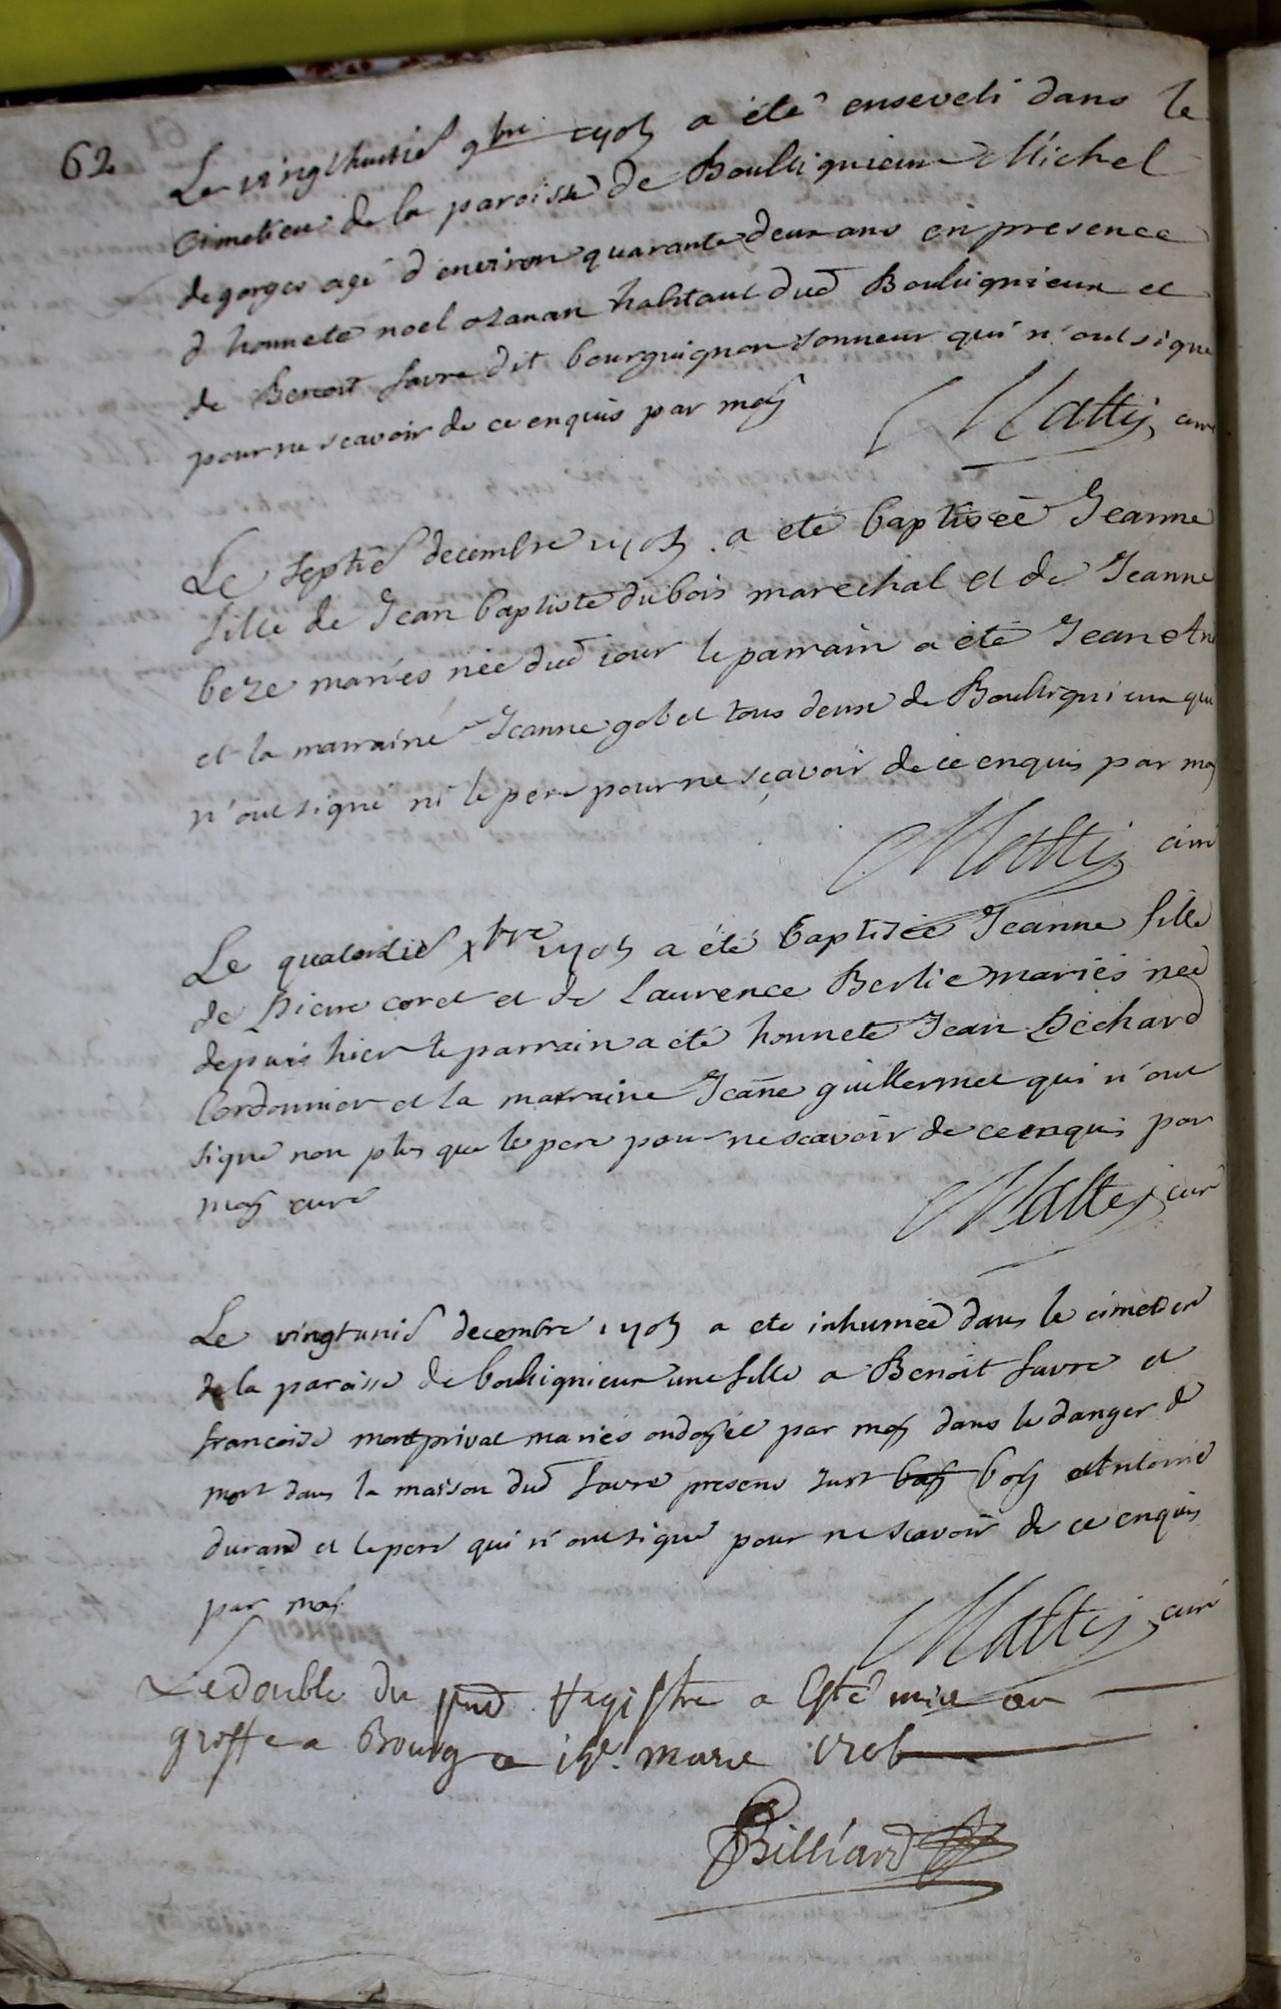 62
Le vingthuitie 9bre 1705 a été enseveli dans le
Cimetiere de la paroisse de Boullignieux Michel
degorges agé d'environ quarante deux ans en presence
d'honnete noel ozanan habitant dud Boulignieux et
de Benoit favre dit bourguignon sonneur qui n'ont signe
pour ne scavoir de ce enquis par moy
Mattij curé
Le septie decembre 1705 a eté baptiseé Jeanne
fille de Jean baptiste dubois marechal et de Jeanne
beze mariés née dud iour le parrain a été Jean
et la marraine Jeanne gobet tous deux de Boullignieux qui
n'ont signé ni le pere pour ne sçavoir de ce enquis par moy
Mattij curé
Le quatorzie xbre 1705 a été baptisée Jeanne fille
de Pierre coret et de Laurence Berlie mariés neé
depuis hier le parrain a été honnete Jean Pechard
Cordonnier et la marraine Jeañe guillermet qui n'ont
signé non plus que le pere pour ne scavoir de ce enquis par
moy curé
Mattij curé
Le vingtunie decembre 1705 a eté inhumeé dans le cimetiere
de la paroisse de boulignieux une fille a Benoit favre et
francoise montprivat mariés ondoyée par moy dans le danger de
mort dans la maison dud favre presens Just boy Antoine
durand et le pere qui n'ont signé pour ne scavoir de ce enquis
par moy
Mattij curé
Le double du pnt Registre a Esté mis au
greffe a Bourg ce 15e. mars 1706
Billiard